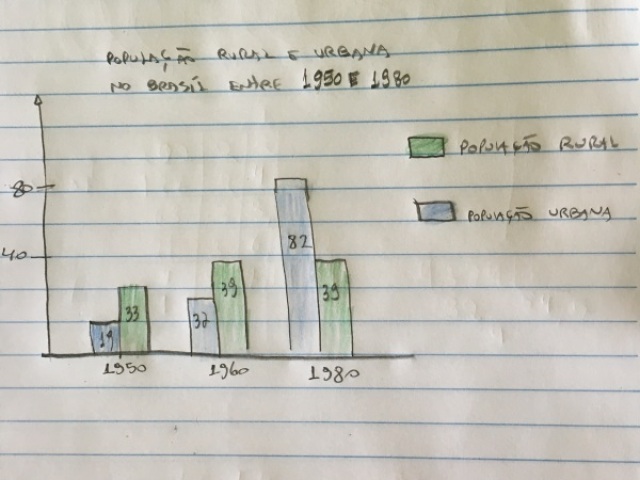 POPULAÇÃO RURAL E URBANA
NO BRASIL ENTRE 1950 E 1980
POPULAÇÃO RURAL
80
POPULAÇÃO URBANA
82
40
39
39
33
32
19
1950
1960
1980